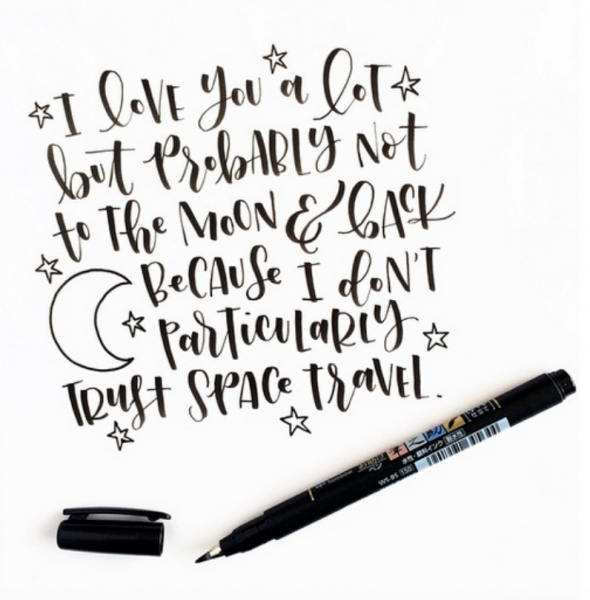 I love you a lot
but probably not
to the moon & back
because I don't
particularly
trust space travel.
水性・顔料インク
WS-BS 150